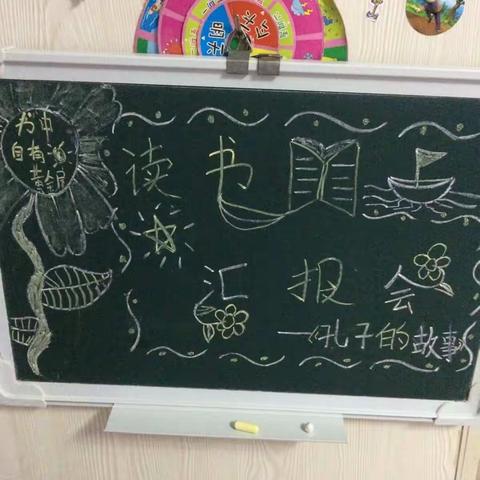 书中
自有
黄金屋
读书
汇报会
—孔子的故事